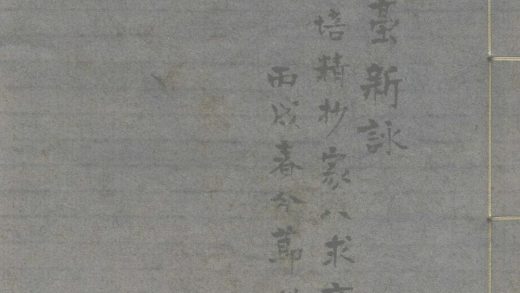 臺新詠
培精抄家八求
丙戌春分節